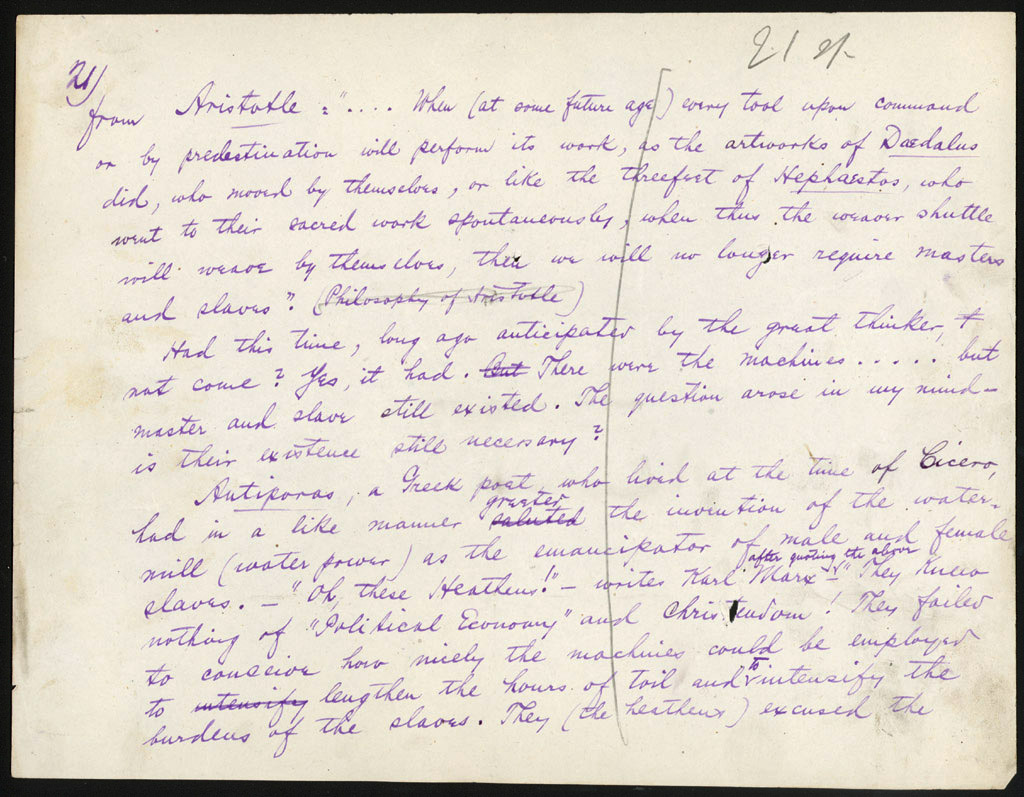 21)
from Aristotle = ".... When (at some future age) every tool upon command
or by predestination will perform its work, as the artworks of Daedalus
did, who moved by themselves, or like the threefeet of Hephaestos, who
went to their sacred work spontaneously, when thus the weaver shuttle
will weave by themselves, then we will no longer require masters
and slaves". (Philosophy of Aristotle)
Had this time, long ago anticipated by the great thinker,
not come? Yes, it had. But There were the machines..... but
master and slave still existed. The question arose in my mind-
is their existence still necessary?
Antiporas, a Greek poet, who lived at the time of Cicero,
greeted
had in a like manner saluted the invention of the water-
mill (water power) as the emancipator of male and female
after quoting the above
slaves. - "Oh, these Heathens!" - writes Karl Marx - "They knew
nothing of "Political Economy" and Christendom! They failed
to conceive how nicely the machines could be employed
to intensify lengthen the hours of toil and to intensify the
burdens of the slaves. They (the heathens) excused the